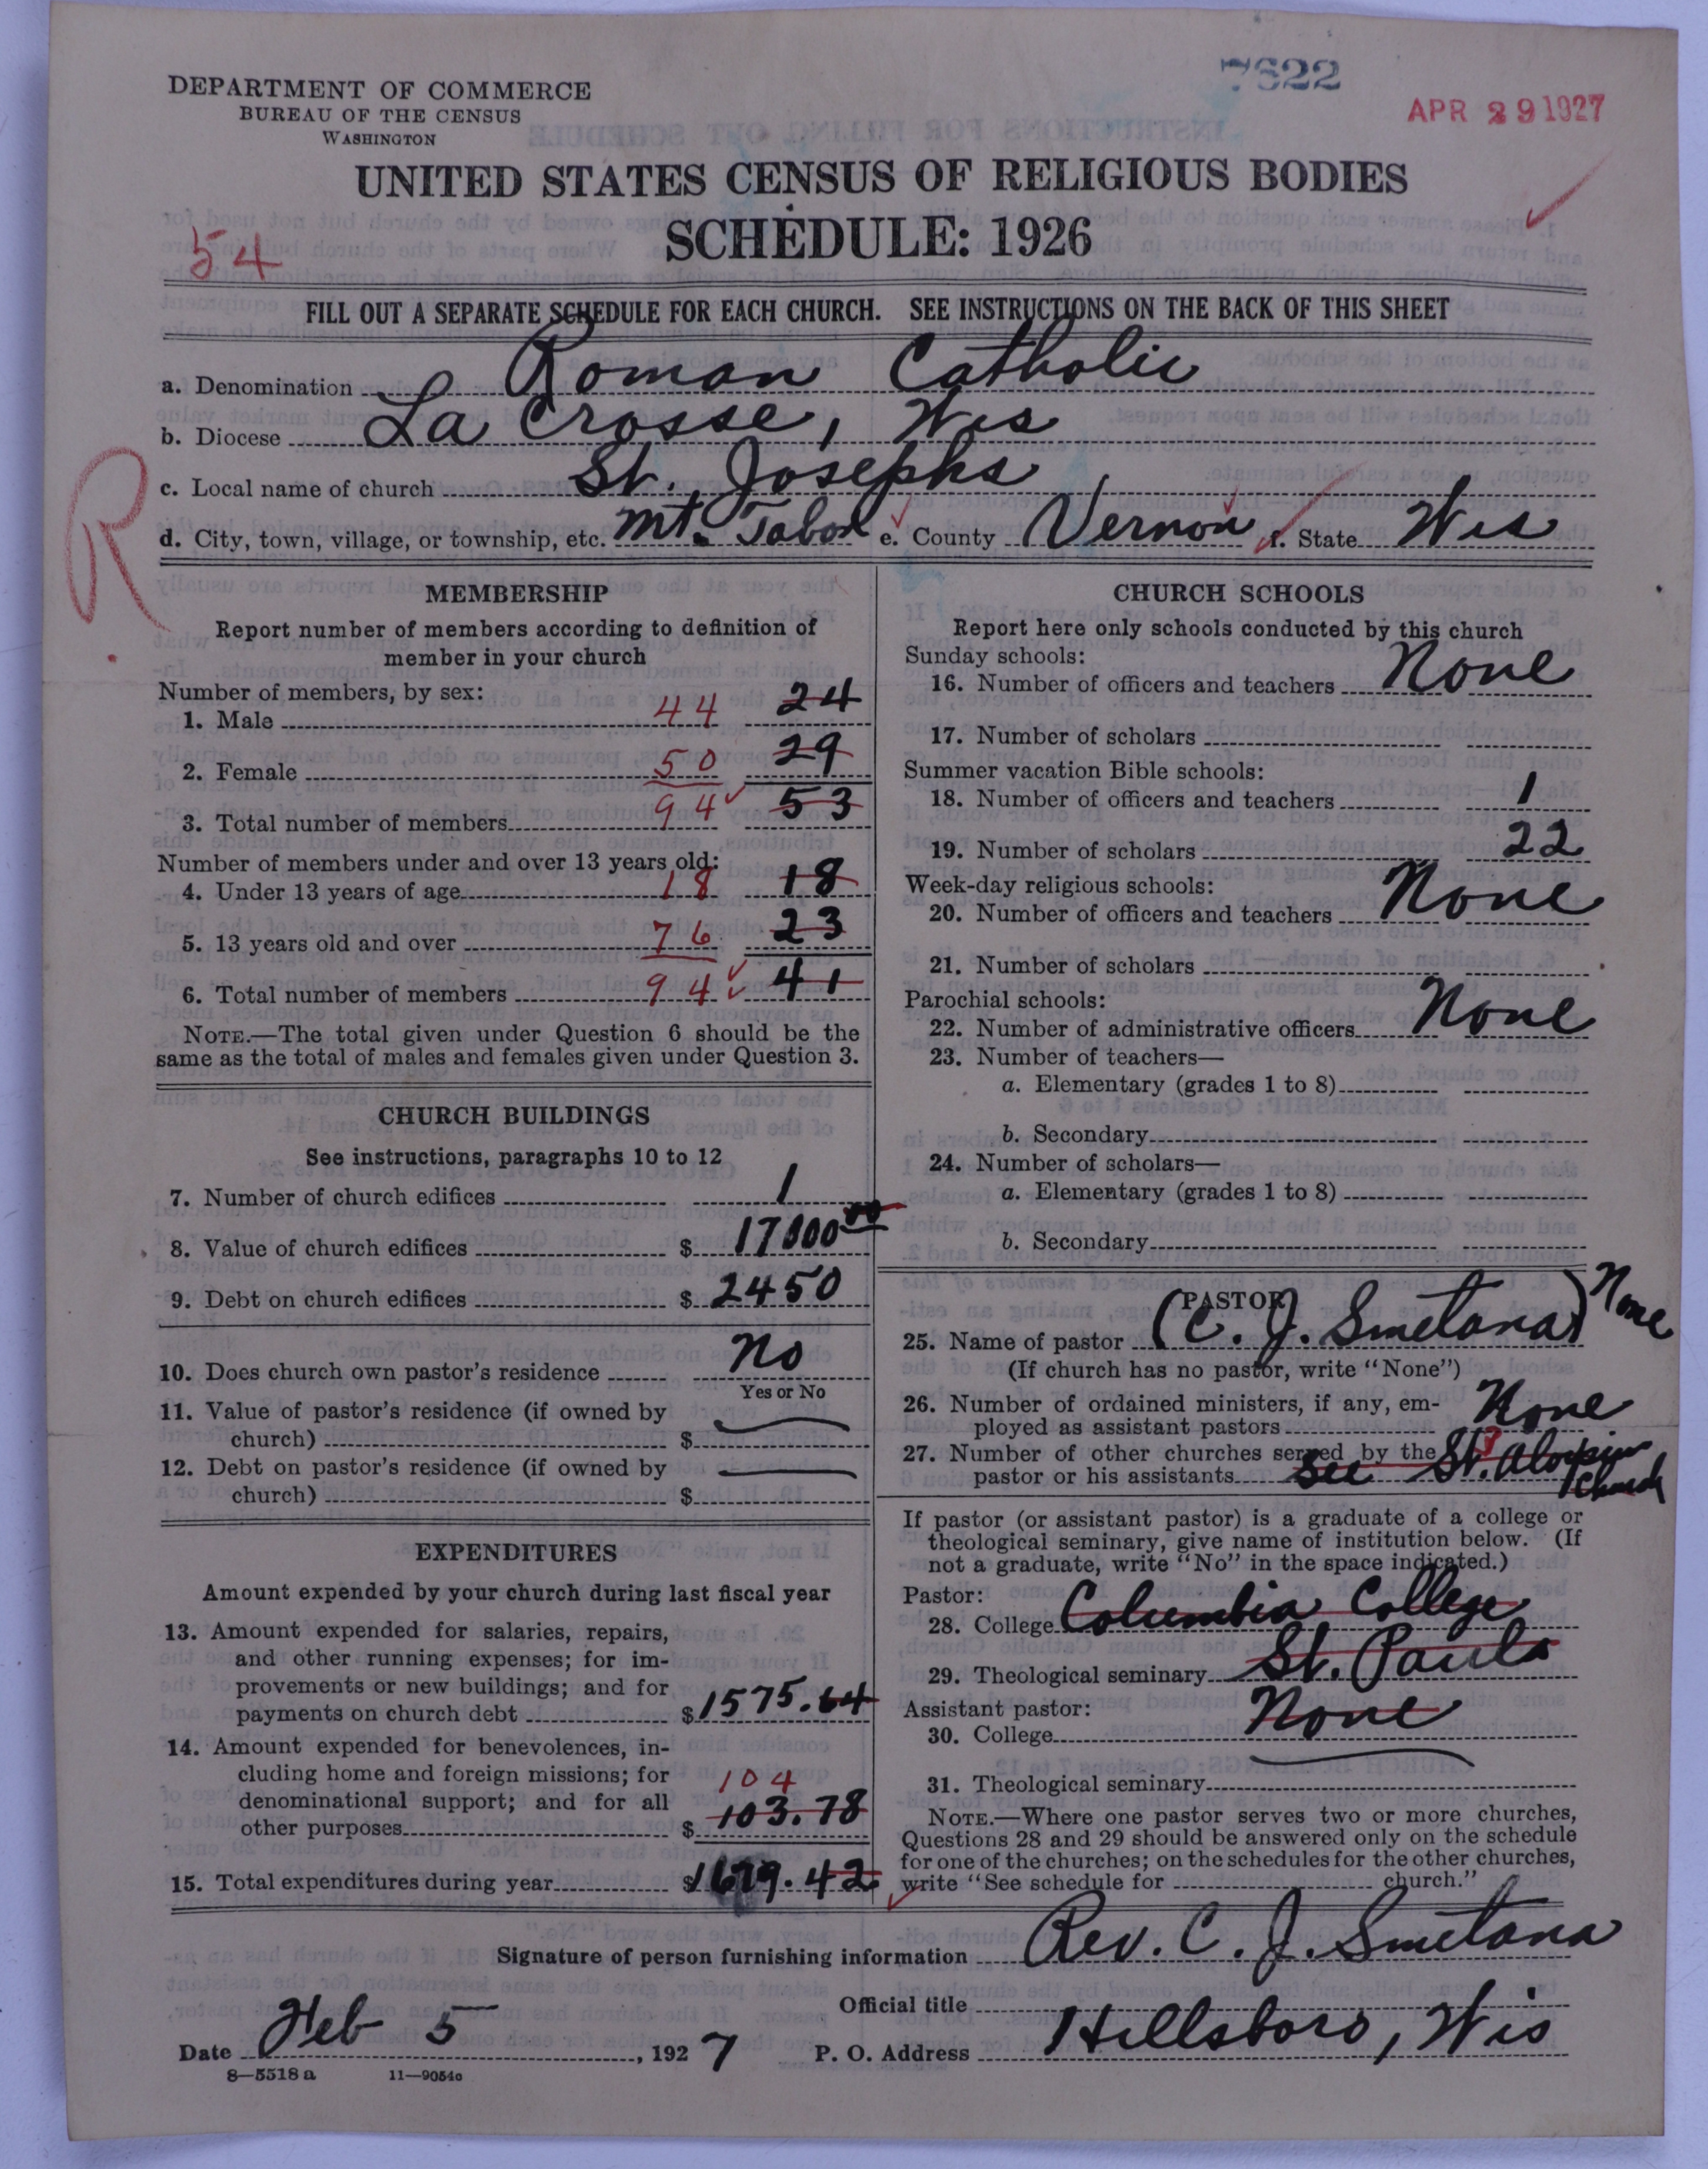 7622
APR 29 1927
DEPARTMENT OF COMMERCE
BUREAU OF THE CENSUS
WASHINGTON
UNITED STATES CENSUS OF RELIGIOUS BODIES
SCHEDULE: 1926
54
FILL OUT A SEPARATE SCHEDULE FOR EACH CHURCH. SEE INSTRUCTIONS ON THE BACK OF THIS SHEET
a. Denomination Roman Catholic
b. Diocese La Crosse, Wis
c. Local name of church St. Josephs
d. City, town, village, or township, etc. Mt. Tabor e. County Vernon f. State Wis
R
MEMBERSHIP
Report number of members according to definition of
member in your church
Number of members, by sex:
1. Male 44 24
2. Female 50 29
3. Total number of members 94 53
Number of members under and over 13 years old:
4. Under 13 years of age 18 18
5. 13 years old and over 76 23
6. Total number of members 94 41
NOTE.—The total given under Question 6 should be the
same as the total of males and females given under Question 3.
CHURCH BUILDINGS
See instructions, paragraphs 10 to 12
7. Number of church edifices 1
8. Value of church edifices $ 17000 00
9. Debt on church edifices $ 2450
10. Does church own pastor's residence No
Yes or No
11. Value of pastor's residence (if owned by
church) $
12. Debt on pastor's residence (if owned by
church) $
EXPENDITURES
Amount expended by your church during last fiscal year
13. Amount expended for salaries, repairs,
and other running expenses; for im-
provements or new buildings; and for
payments on church debt $ 1575.64
14. Amount expended for benevolences, in-
cluding home and foreign missions; for
104
denominational support; and for all
other purposes $ 103.78
15. Total expenditures during year $ 1679.42
CHURCH SCHOOLS
Report here only schools conducted by this church
Sunday schools:
16. Number of officers and teachers None
17. Number of scholars
Summer vacation Bible schools:
18. Number of officers and teachers 1
19. Number of scholars 22
Week-day religious schools:
20. Number of officers and teachers None
21. Number of scholars
Parochial schools:
22. Number of administrative officers None
23. Number of teachers—
a. Elementary (grades 1 to 8)
b. Secondary
24. Number of scholars—
a. Elementary (grades 1 to 8)
b. Secondary
PASTOR
25. Name of pastor (C. J. Smetana) None
(If church has no pastor, write "None")
26. Number of ordained ministers, if any, em-
ployed as assistant pastors None
27. Number of other churches served by the 3
pastor or his assistants See St. Aloysius Church
If pastor (or assistant pastor) is a graduate of a college or
theological seminary, give name of institution below. (If
not a graduate, write "No" in the space indicated.)
Pastor:
28. College Columbia College
29. Theological seminary St. Pauls
Assistant pastor:
30. College None
31. Theological seminary
NOTE.—Where one pastor serves two or more churches,
Questions 28 and 29 should be answered only on the schedule
for one of the churches; on the schedules for the other churches,
write "See schedule for church."
Signature of person furnishing information Rev. C. J. Smetana
Official title
Date Feb 5, 1927 P. O. Address Hillsboro, Wis
8—5518a 11—9054c